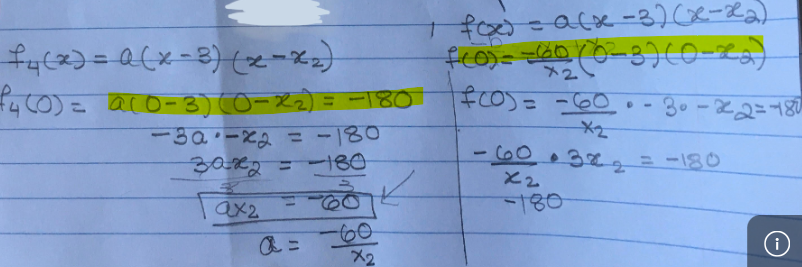 f₄(x) = a(x-3)(x-x₂)
f₄(0) = a(0-3)(0-x₂) = -180
-3a·-x₂ = -180
3ax₂ = -180
3 3
ax₂ = -60
a = -60/x₂
f(x) = a(x-3)(x-x₂)
f(0) = -60/x₂ (0-3)(0-x₂)
f(0) = -60/x₂ · -3 · -x₂ = -180
-60/x₂ · 3x₂ = -180
-180